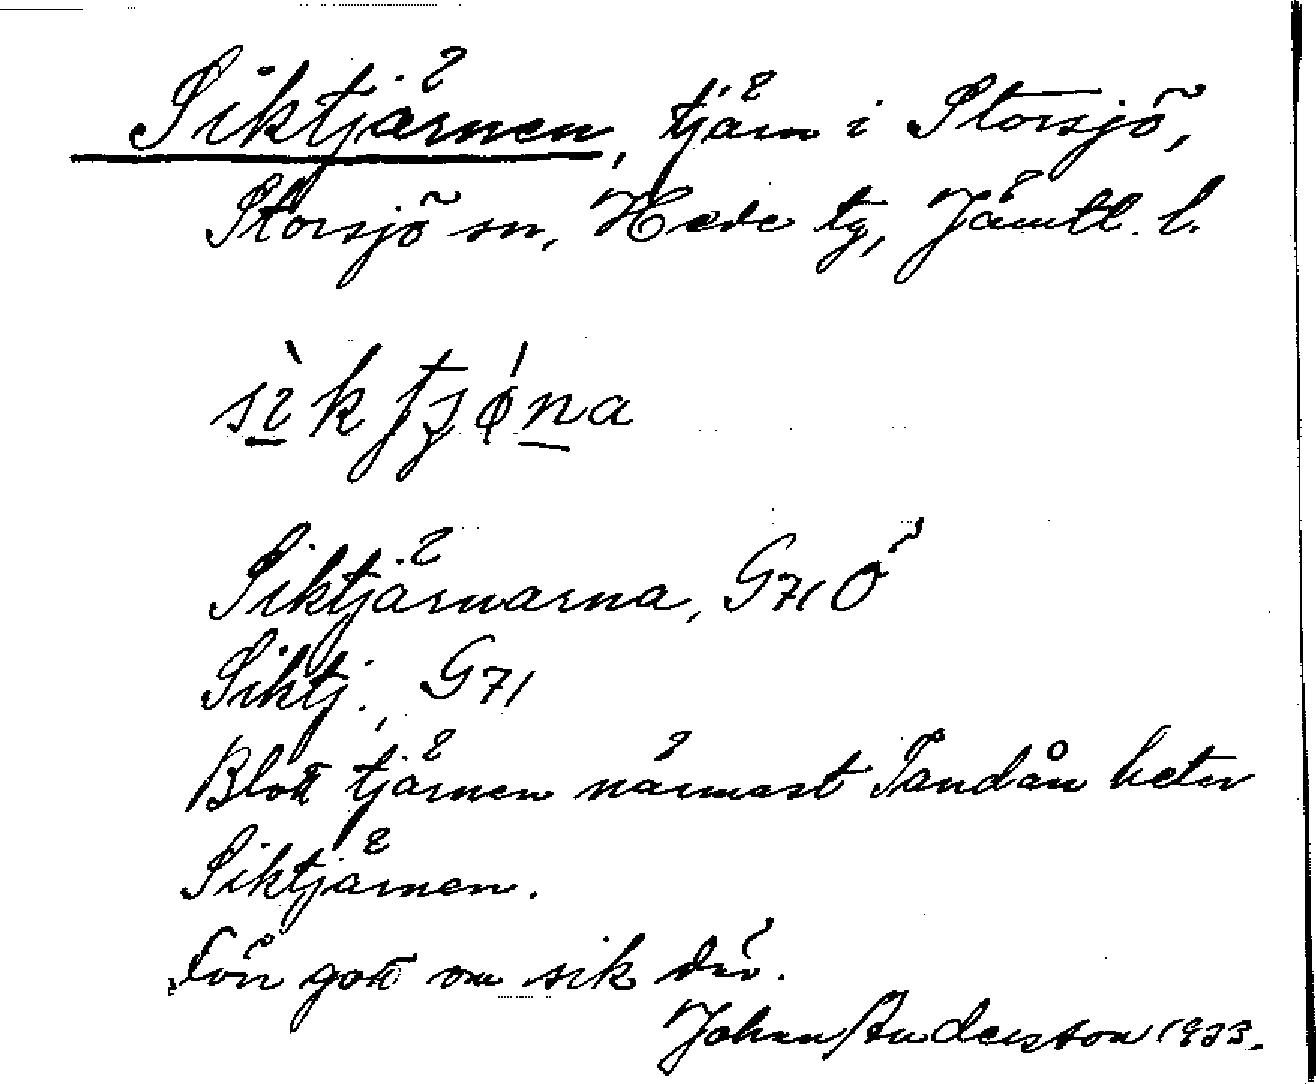 Siktjärnen, tjärn i Storsjö,
Storsjö sn, Hede tg, Jämtl. l.
Siktjärnarna, G71 Ö
Siktj., G71
Blott tjärnen närmast Tandån heter
Siktjärnen.
Förr gott om sik där.
Johan Andersson 1933.